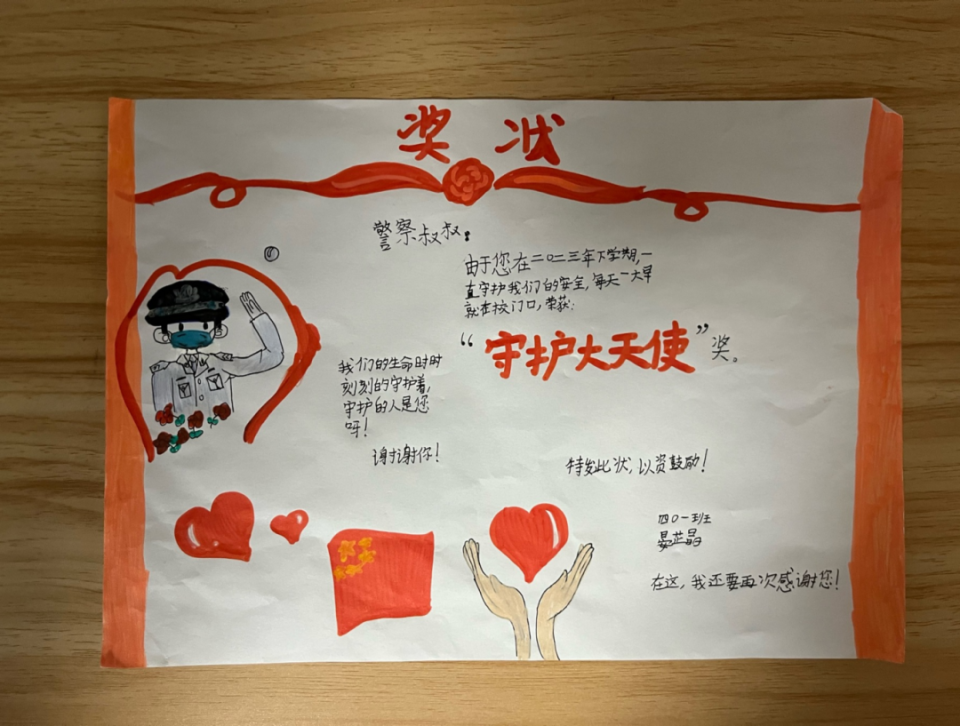 奖状
警察叔叔：
由于您在二〇二三年下学期，一
直守护我们的安全，每天一大早
就在校门口，荣获：
“守护大天使”奖。
我们的生命时时
刻刻的守护着，
守护的人是您
呀！
谢谢你！
特发此状，以资鼓励！
四〇一班
晏芷晶
在这，我还要再次感谢您！